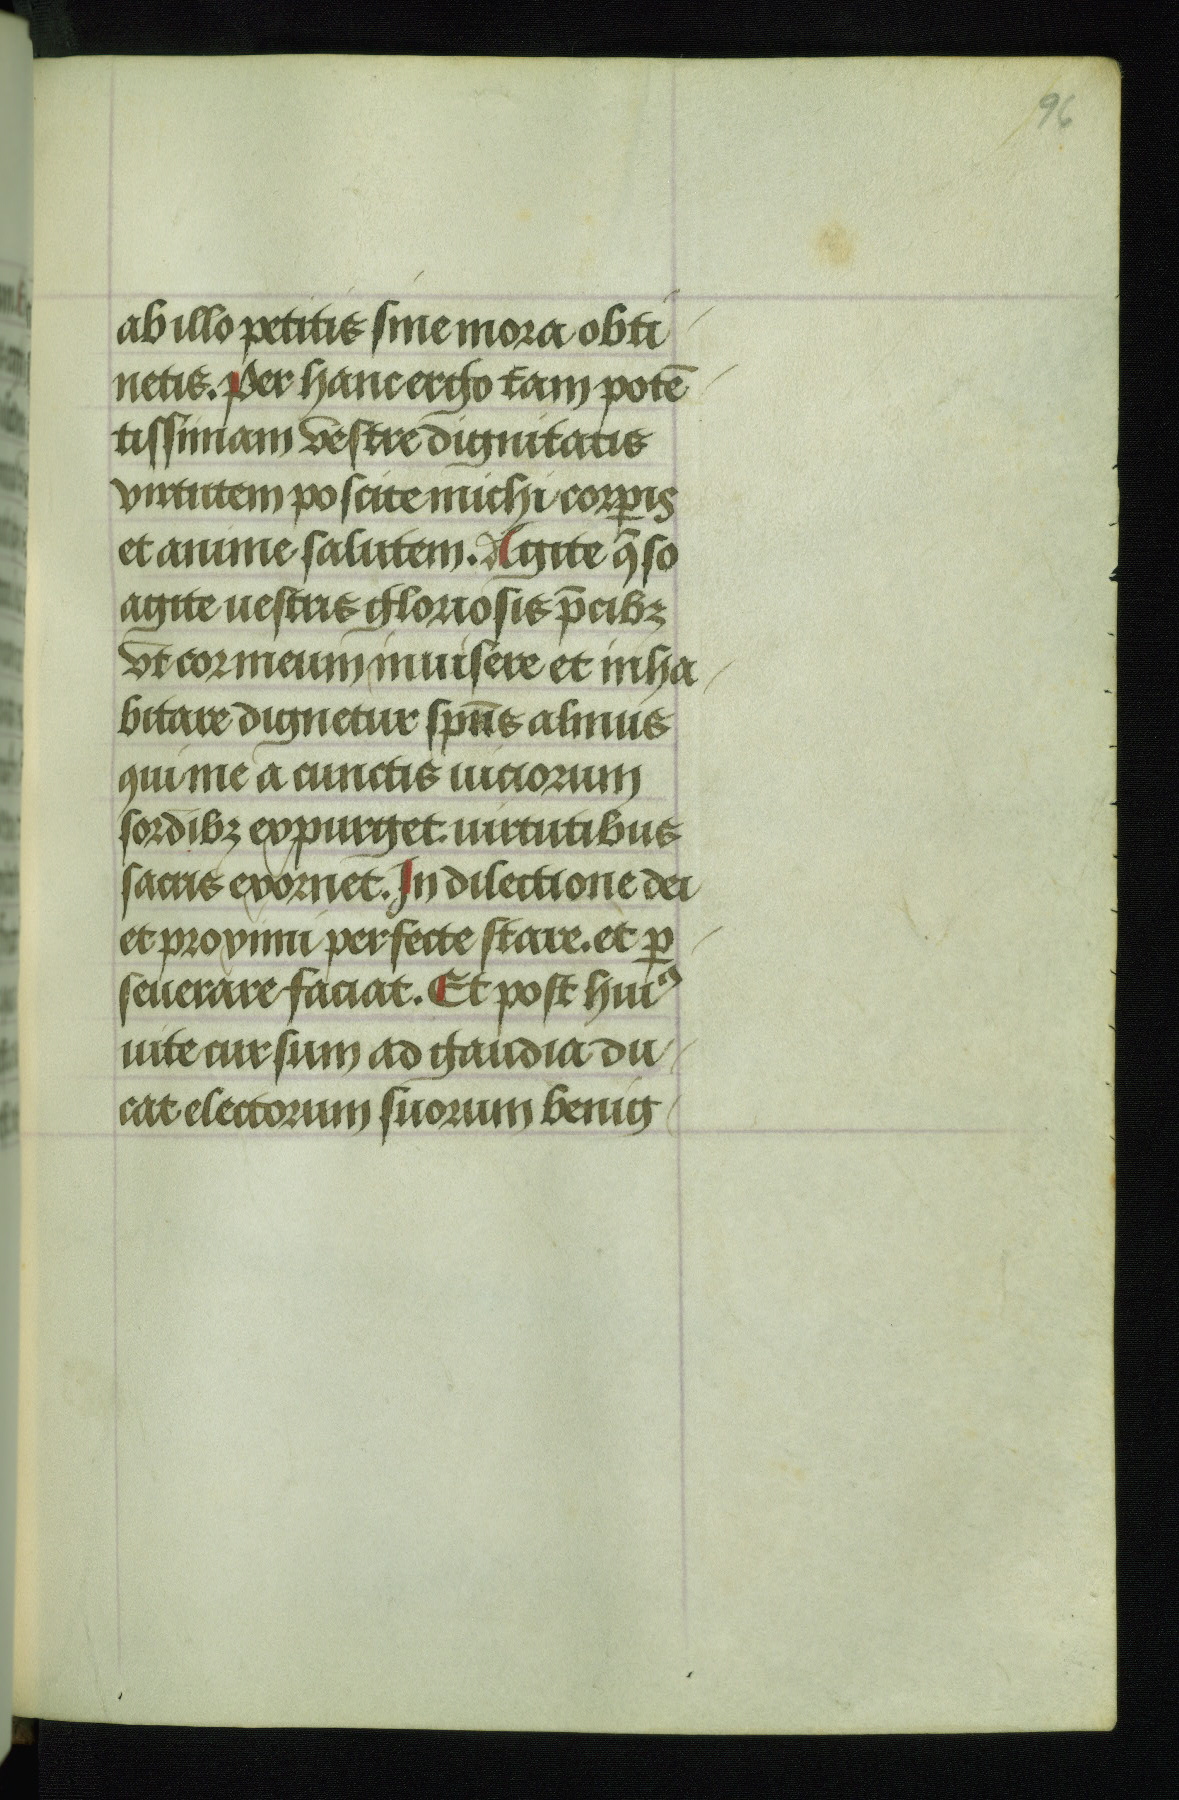 96
ab illo petitis sine mora obti
netis. Per hanc ergo tam potē
tissimam vestre dignitatis
virtutem poscite michi corꝑis
et anime salutem. Agite q̄so
agite uestris gloriosis p̄cibꝫ
vt cor meum inuisere et inha
bitare dignetur spūs almus
qui me a cunctis uiciorum
sordibꝫ expurget. uirtutibus
sacris exornet. In dilectione dei
et proximi perfecte stare. et ꝑ
seuerare faciat. Et post huiꝰ
uite cursum ad gaudia du
cat electorum suorum benig